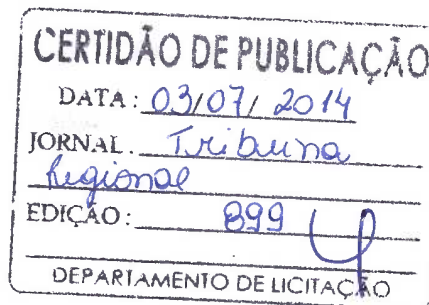 CERTIDÃO DE PUBLICAÇÃO
DATA: 03/07/2014
JORNAL. Tribuna
Regional
EDIÇÃO: 899
DEPARTAMENTO DE LICITAÇÃO